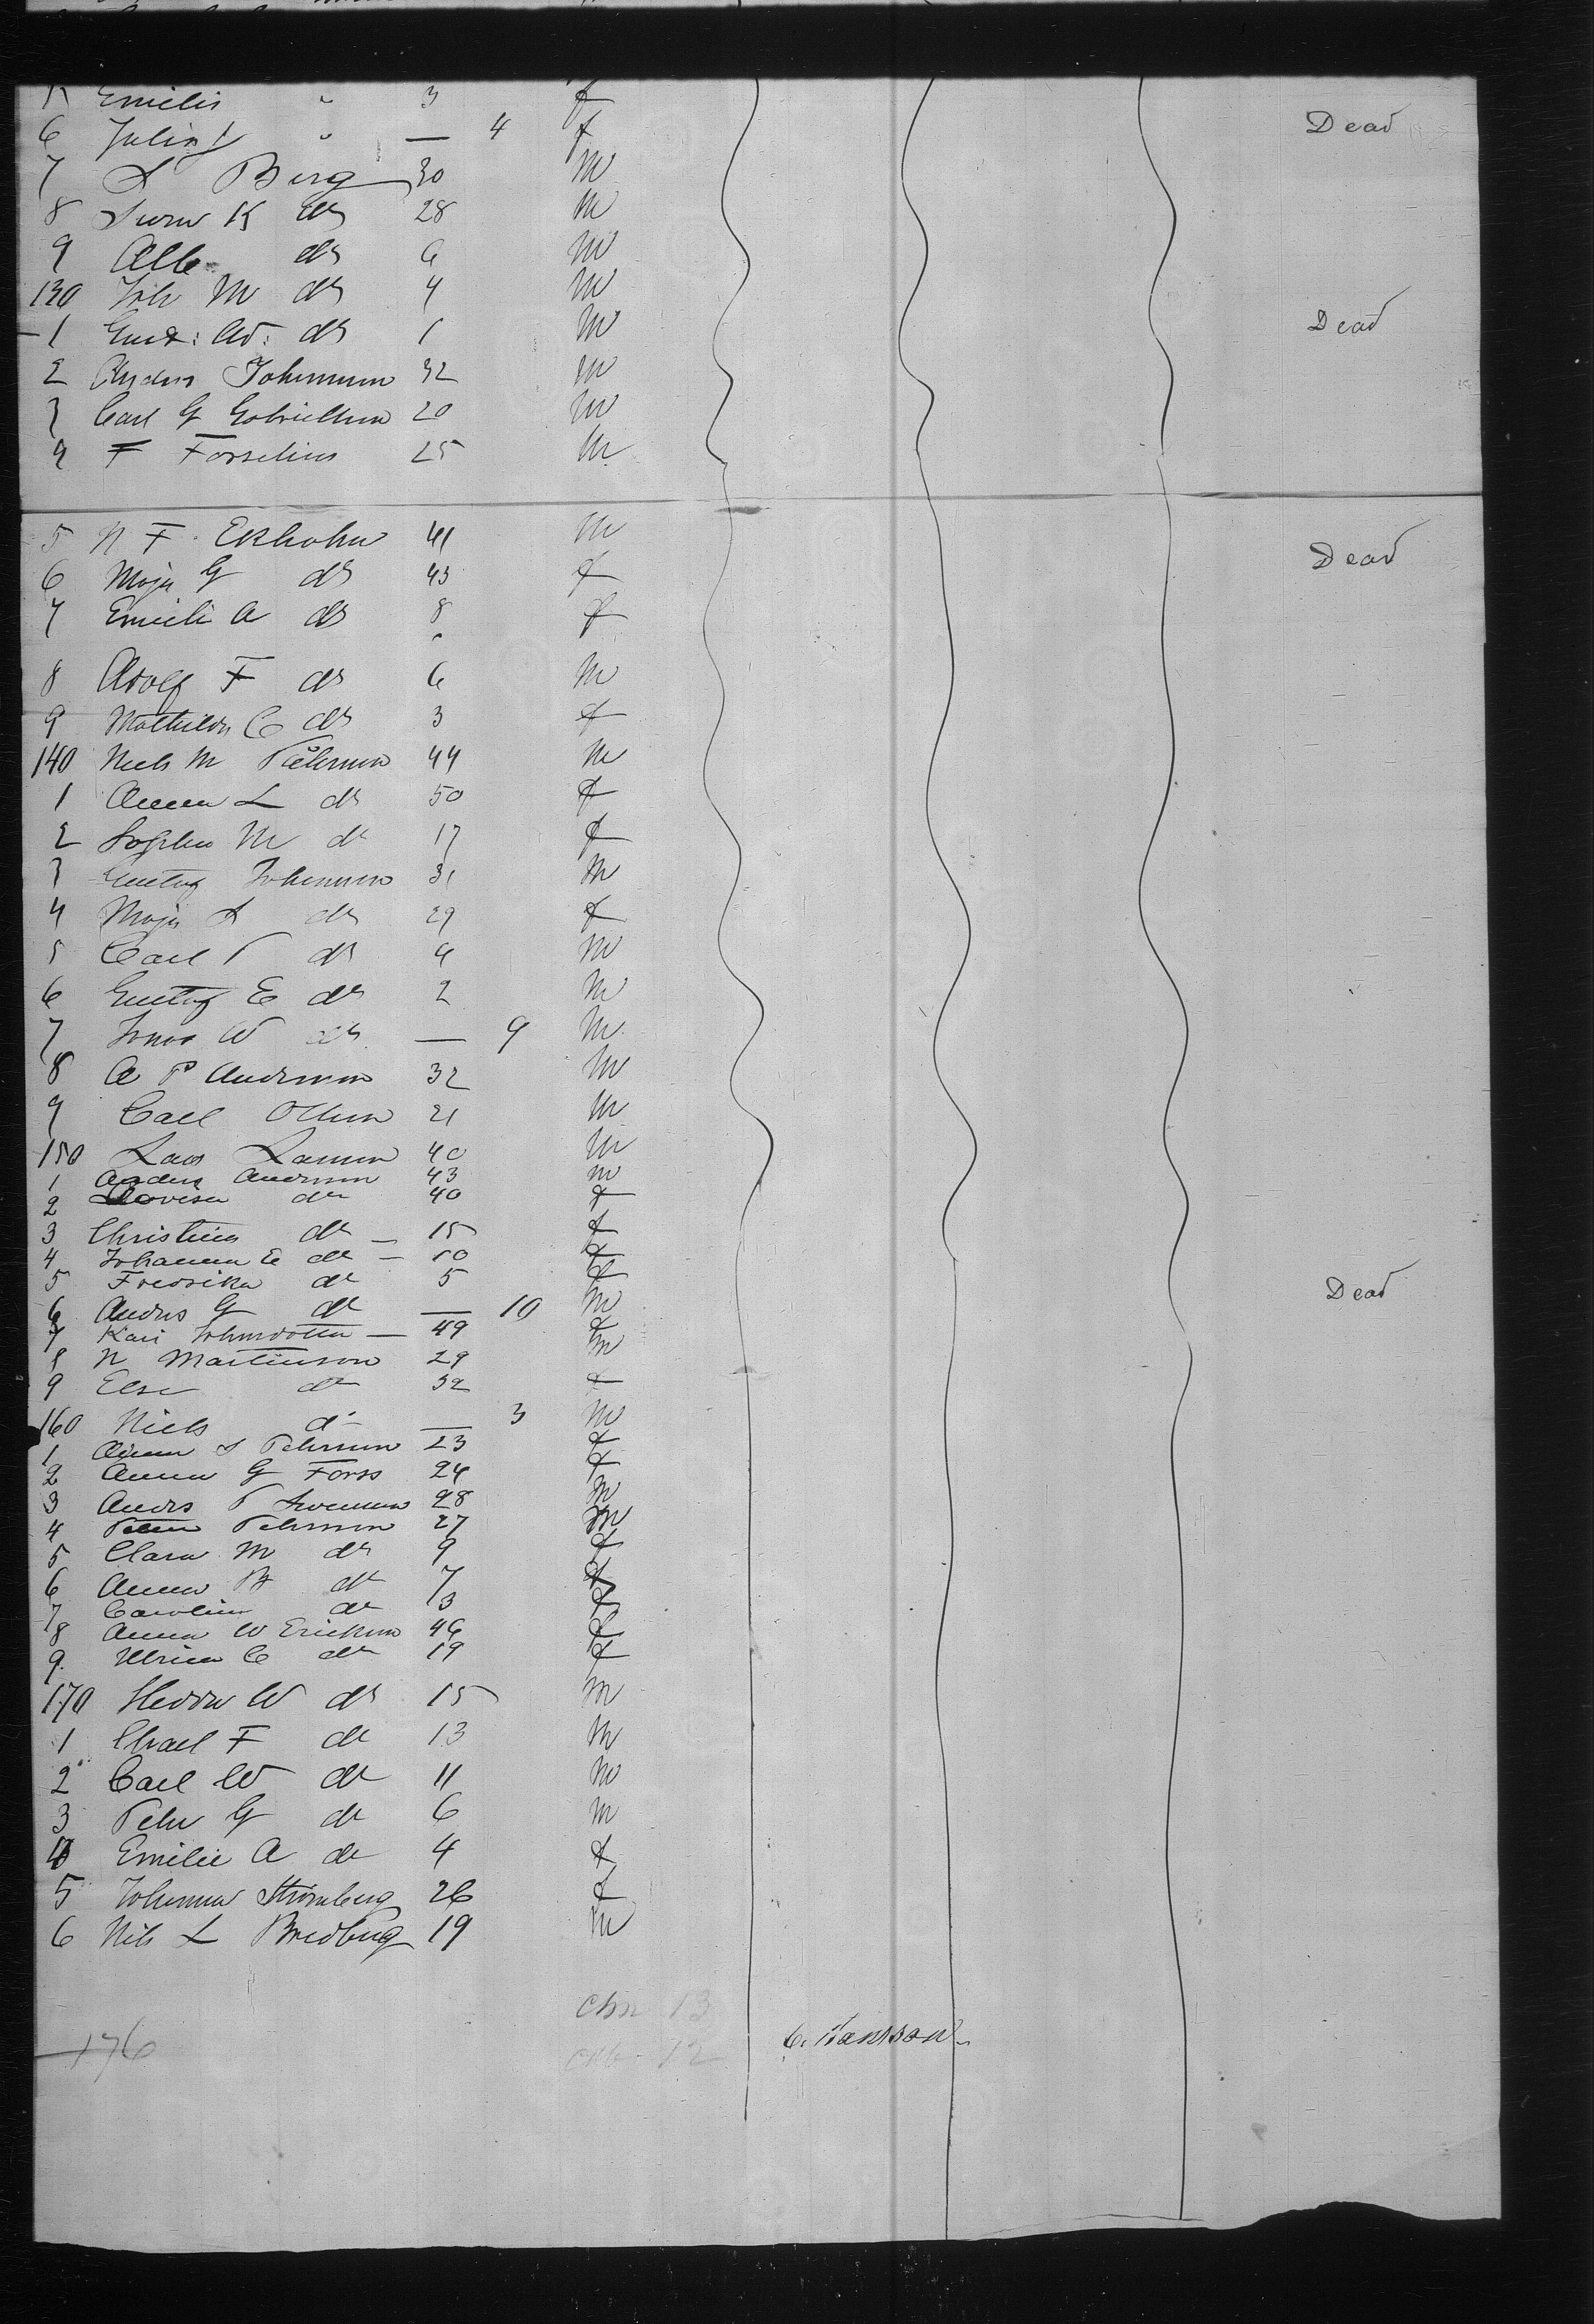 5 Emili " 3 f
6 " — 4 f Dead
7 S Berg 30 m
8 K do 28 m
9 Alb do 6 m
130 Joh M do 4 m
1 Gust: Ad: do 1 m Dead
2 Anders Johansson 32 m
3 Carl G Gabrielsson 20 m
4 F Forselius 25 m
5 N F Ekholm 41 m Dead
6 Maja G do 43 f
7 Emili A do 8 f
8 Adolf F do 6 m
9 Mathilda C do 3 f
140 Niels M Påhrson 44 m
1 Anna L do 50 f
2 Sophia M do 17 f
3 Gustaf Johansson 31 m
4 Maja S do 29 f
5 Carl P do 4 m
6 Gustaf E do 2 m
7 Jonas W do — 9 m
8 A P Anderson 32 m
9 Carl Olson 21 m
150 Lars Larsson 40 m
1 Anders Anderson 43 m
2 Lovisa do 40 f
3 Christina do — 15 f
4 Johanna E do — 10 f
5 Fredrika do 5 f Dead
6 Andrs G do — 10 m
7 Kari Johnsdotter — 49 f
8 N Martinson 29 m
9 Else do 32 f
160 Niels do — 3 m
1 Anna S Pehrson 23 f
2 Anna G Forss 24 f
3 Andrs P Svensson 28 m
4 Pehrson 27 m
5 Clara M do 9 f
6 Anna B do 7 f
7 Carolina do 3 f
8 Anna W Erickson 46 f
9 Ulrica C do 19 f
170 Hedda W do 15 m
1 Chael F do 13 m
2 Carl W do 11 m
3 Pehr G do 6 m
4 Emilie A do 4 f
5 Johanna Strömberg 26 f
6 Nils L Bredberg 19 m
13
176 12 C. Hansson